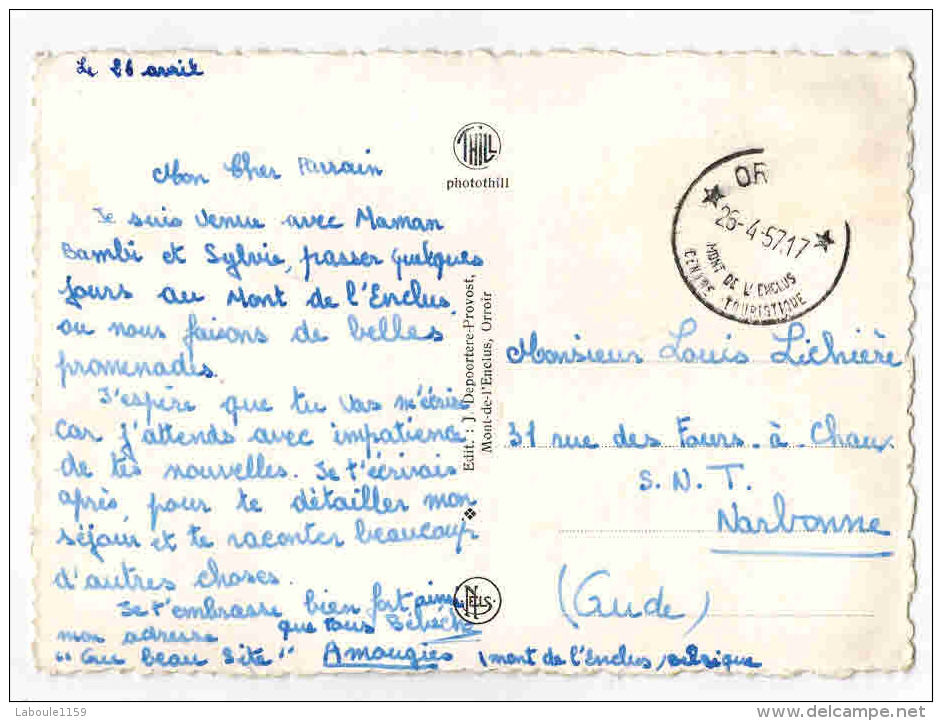 Le 26 avril
Mon Cher Parrain
Je suis venue avec Maman
Bambi et Sylvie, passer quelques
jours au Mont de l'Enclus,
ou nous faisons de belles
promenades.
J'espère que tu vas m'écrire
car j'attends avec impatience
de tes nouvelles. Je t'écrirais
après pour te détailler mon
séjour et te raconter beaucoup
d'autres choses.
Je t'embrasse bien fort ainsi
que tous
mon adresse
"Beau Site" Amougies (mont de l'Enclus, Belgique
THILL
photothill
Edit. : J. Depoortere-Provost,
Mont-de-l'Enclus, Orroir
NELS
OR
26-4-57.17
MONT DE L'ENCLUS
CENTRE TOURISTIQUE
Monsieur Louis Lichière
31 rue des Fours-à-Chaux
S.N.T.
Narbonne
(Aude)
Laboule1159
delcampe.net